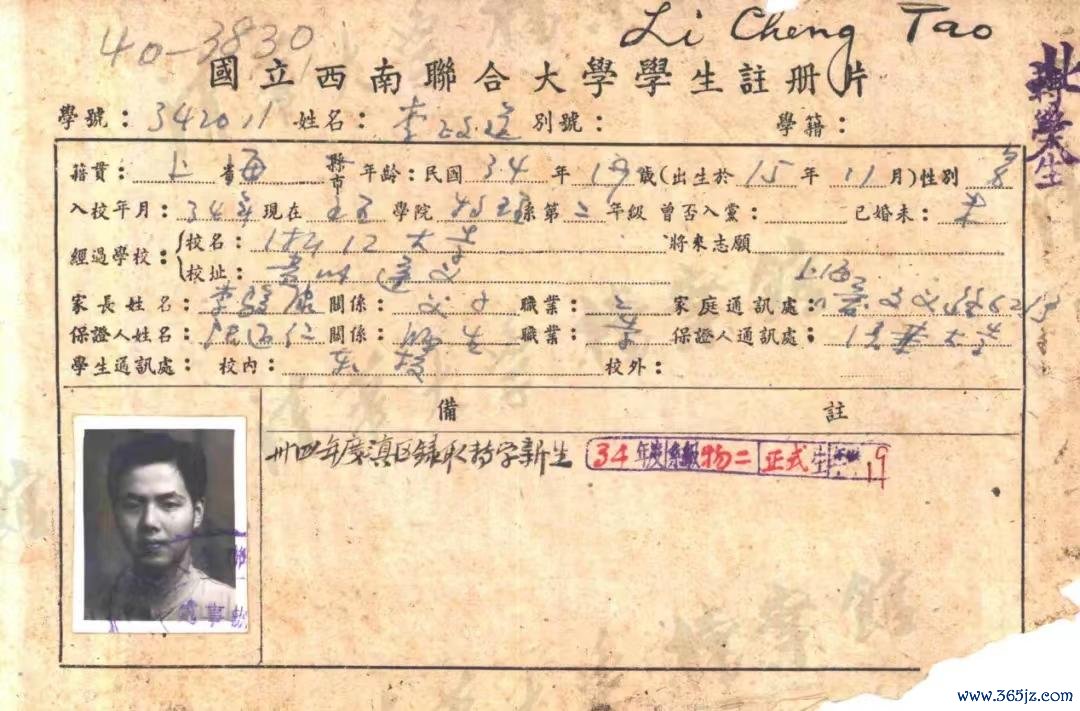 40-3830
Li Cheng Tao
國立西南聯合大學學生註册片
學號：342011 姓名：李政道 別號： 學籍：
轉學生
籍貫：上省海縣市 年齡：民國34年19歲(出生於15年11月)性別男
入校年月：34年 現在 學院 系第二年級 曾否入黨： 已婚未：未
經過學校：校名：浙江大學 將來志願
校址：貴州遵义
上海
家長姓名：李駿康 關係：父子 職業： 家庭通訊處：
保證人姓名： 關係：師生 職業： 保證人通訊處：大學
學生通訊處： 校内： 校外：
備註
卅四年度滇区録取轉学新生 34年度系級物二 正式生 19
www.365jz.com